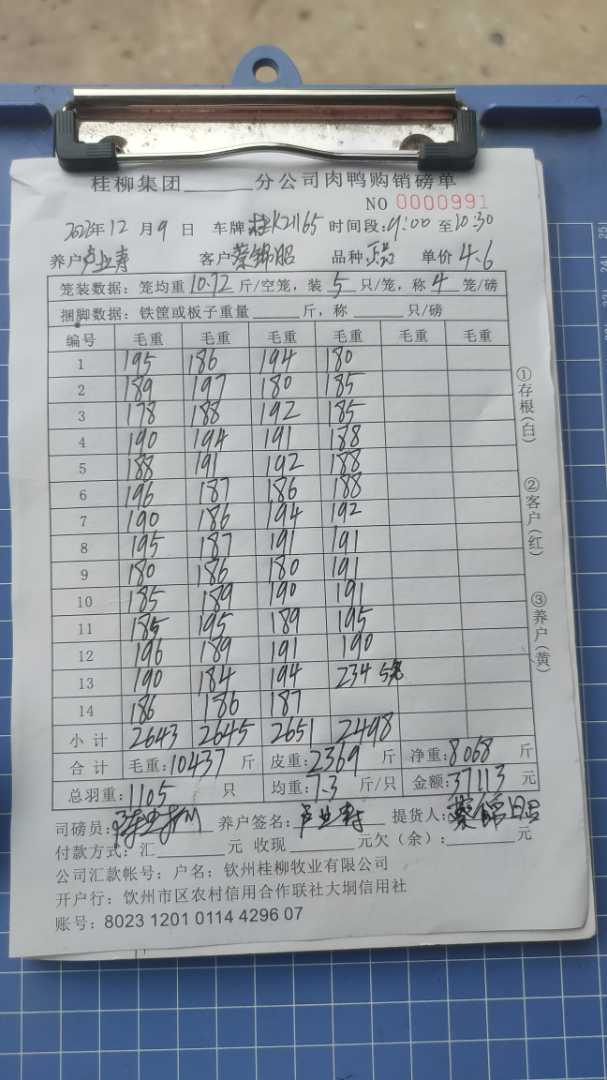 桂柳集团______分公司肉鸭购销磅单
NO 0000991
2023年12月9日 车牌:桂K21165 时间段:9:00至10:30
养户 卢业寿 客户 蔡锦昭 品种 单价 4.6
笼装数据：笼均重 10.72 斤/空笼，装 5 只/笼，称 4 笼/磅
捆脚数据：铁筐或板子重量______斤，称______只/磅
编号 毛重 毛重 毛重 毛重 毛重 毛重
1 195 186 194 180
2 189 197 180 185
3 178 188 192 185
4 190 194 191 188
5 188 191 192 188
6 196 187 186 188
7 190 186 194 192
8 195 187 191 191
9 180 186 180 191
10 185 189 190 191
11 185 195 189 195
12 196 189 191 190
13 190 184 194 234 5笼
14 186 186 187
小计 2643 2645 2651 2498
合计 毛重:10437 斤 皮重:2369 斤 净重:8068 斤
总羽重:1105 只 均重:7.3 斤/只 金额:37113 元
司磅员: 养户签名:卢业寿 提货人:蔡锦昭
付款方式：汇______元 收现______元欠（余）:______元
公司汇款帐号：户名：钦州桂柳牧业有限公司
开户行：钦州市区农村信用合作联社大垌信用社
账号：8023 1201 0114 4296 07
①存根(白)
②客户(红)
③养户(黄)